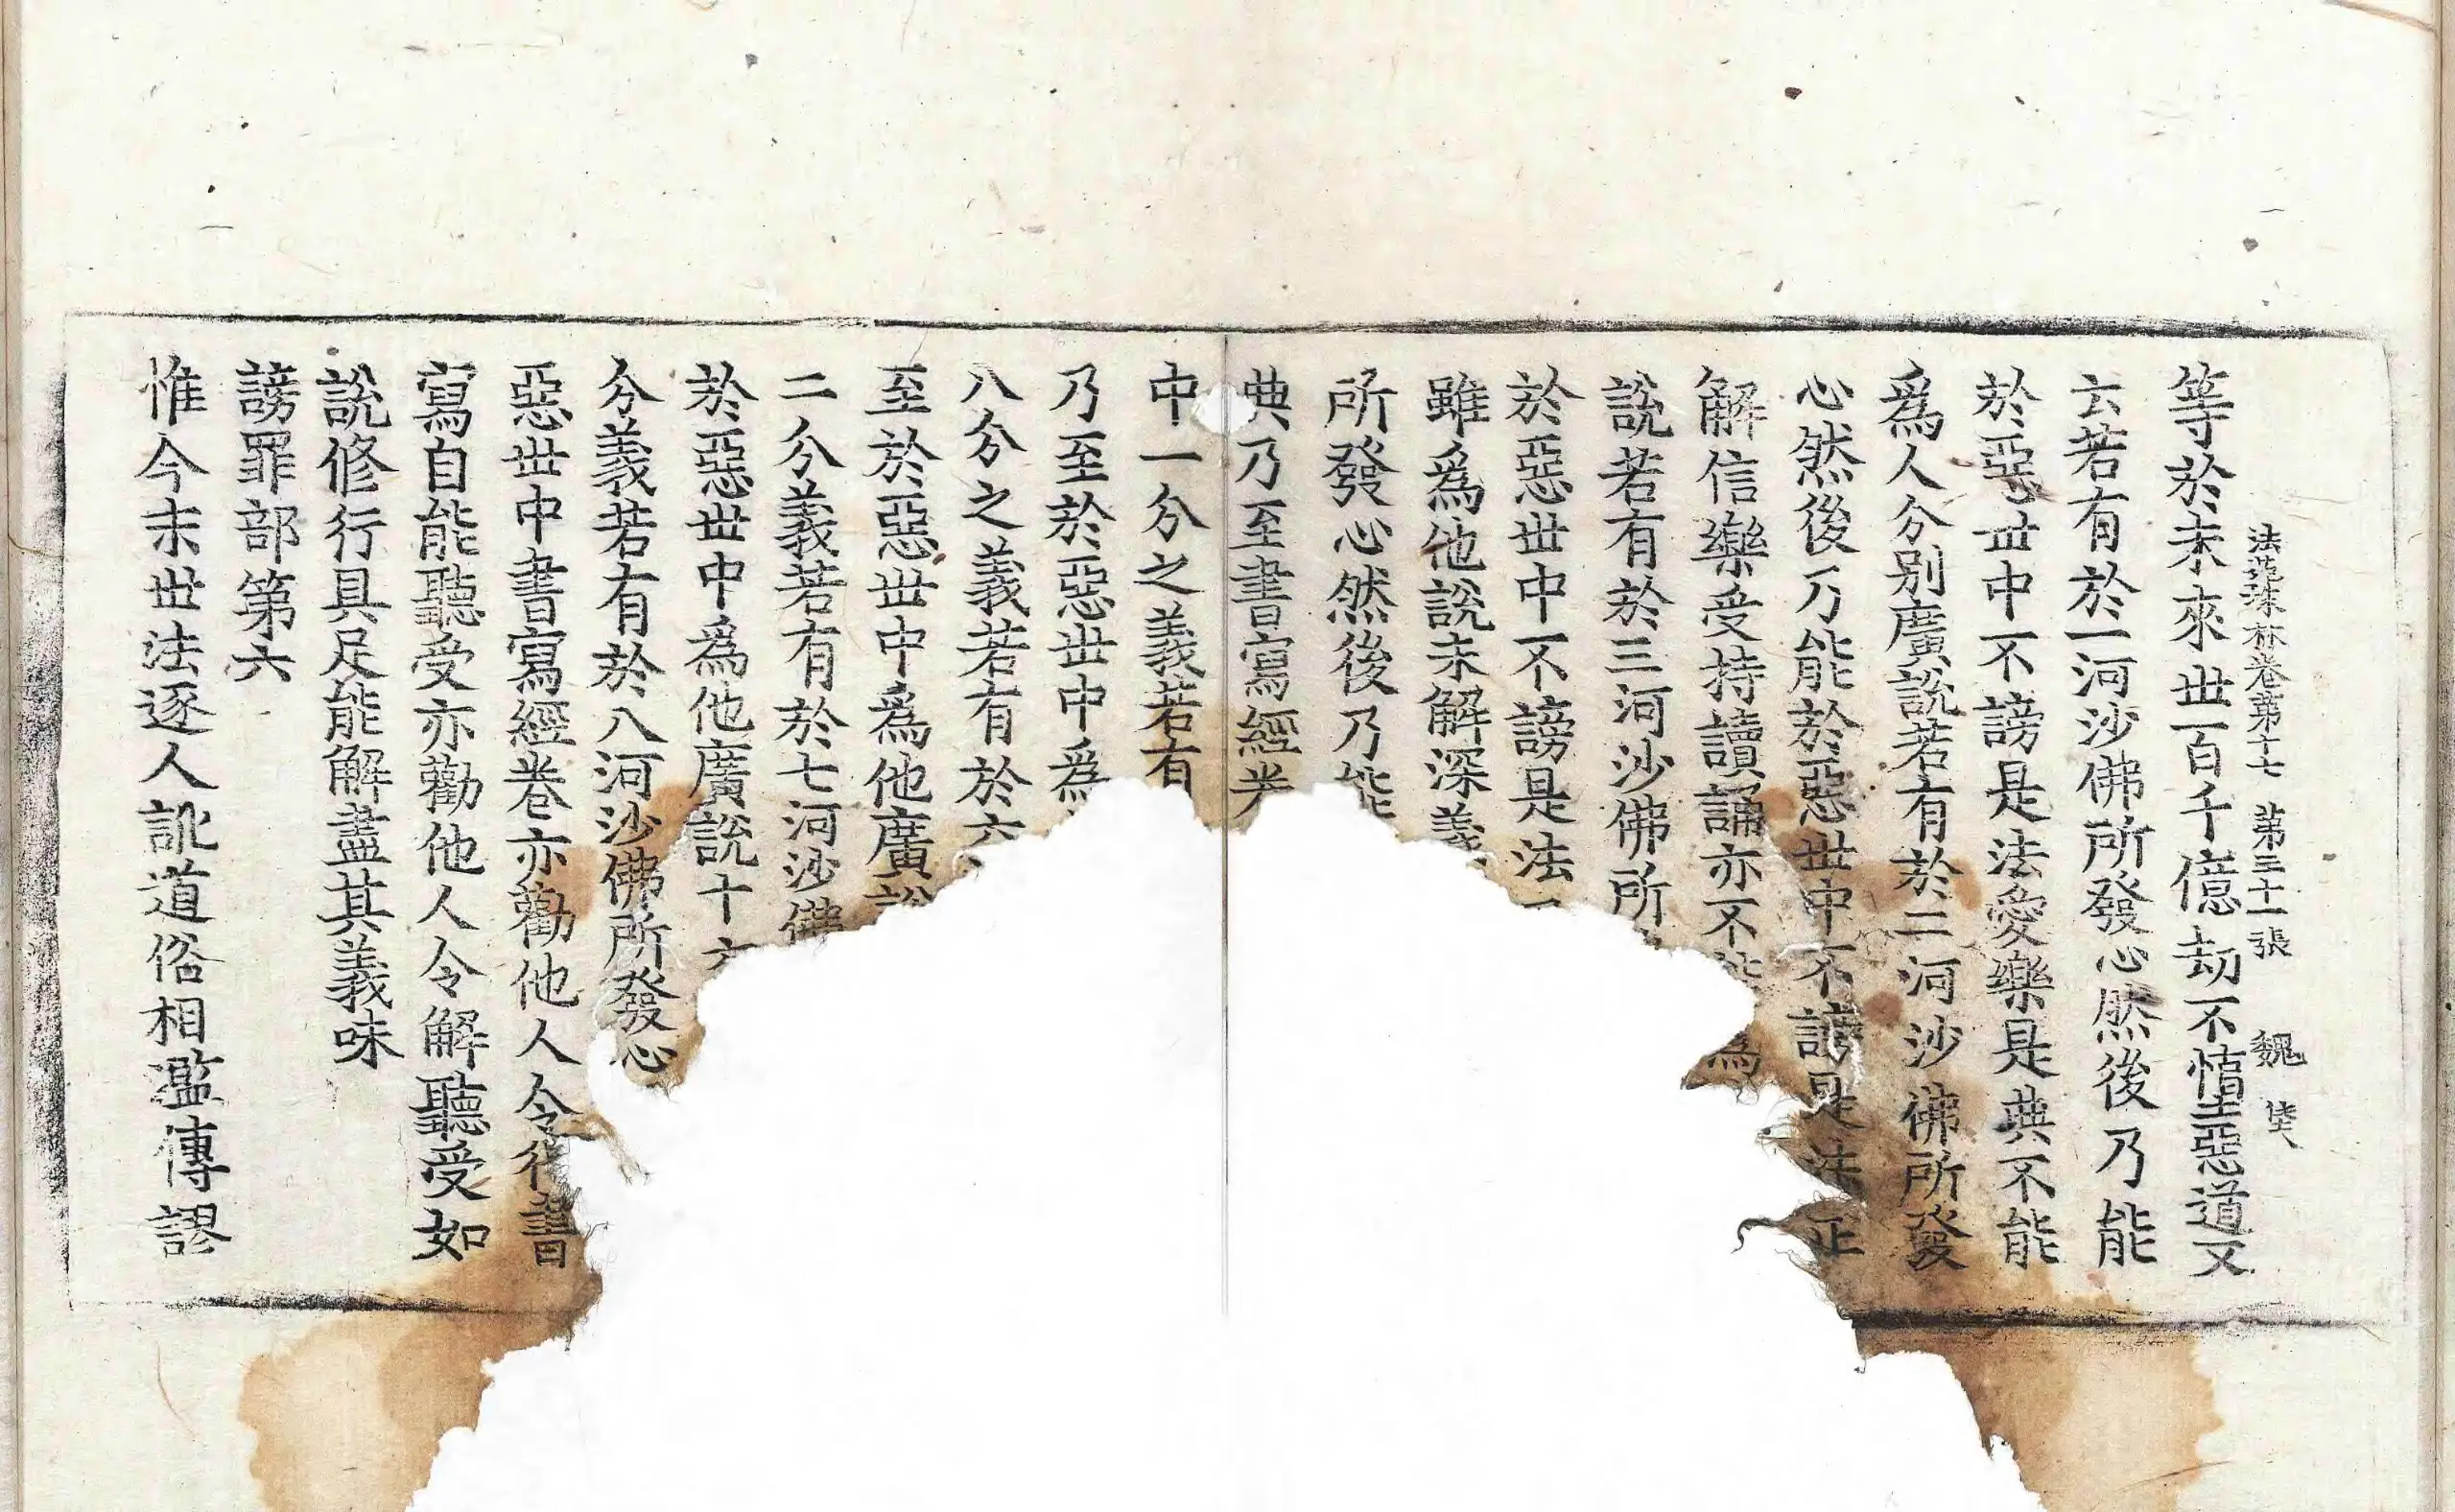 法苑珠林卷第十七 第三十一張 魏
等於未來世百千億劫不憻惡道又
云若有於一河沙佛所發心然後乃能
於惡世中不謗是法愛樂是典不能
爲人分別廣說若有於二河沙佛所發
心然後乃能於惡世中不謗是法正
解信樂受持讀誦亦不能爲
說若有於三河沙佛所
於惡世中不謗是法
雖爲他說未解深義
所發心然後乃能
典乃至書寫經
中一分之義若有
乃至於惡世中爲
八分之義若有於六
至於惡世中爲他廣說
二分義若有於七河沙佛
於惡世中爲他廣說十六
分義若有於八河沙佛所發心
惡世中書寫經卷亦勸他人令得書
寫自能聽受亦勸他人令解聽受如
說修行具足能解盡其義味
謗罪部第六
惟今末世法逐人訛道俗相濫傳謬